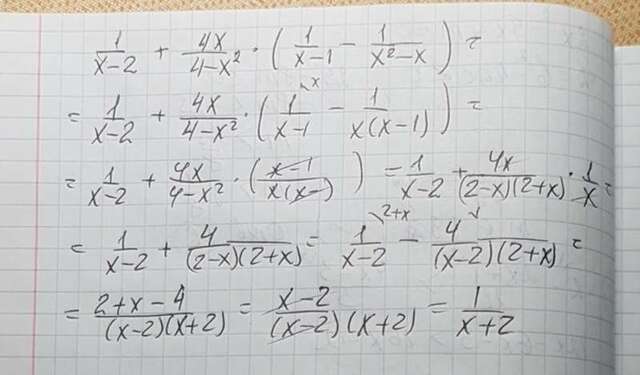 1/(x-2) + 4x/(4-x²) · (1/(x-1) - 1/(x²-x)) =
= 1/(x-2) + 4x/(4-x²) · (1\x/(x-1) - 1/(x(x-1))) =
= 1/(x-2) + 4x/(4-x²) · ((x-1)/(x(x-))) = 1/(x-2) + 4x/((2-x)(2+x)) · 1/x =
= 1/(x-2) + 4/((2-x)(2+x)) = 1\2+x/(x-2) - 4\/((x-2)(2+x)) =
= (2+x-4)/((x-2)(x+2)) = (x-2)/((x-2)(x+2)) = 1/(x+2)